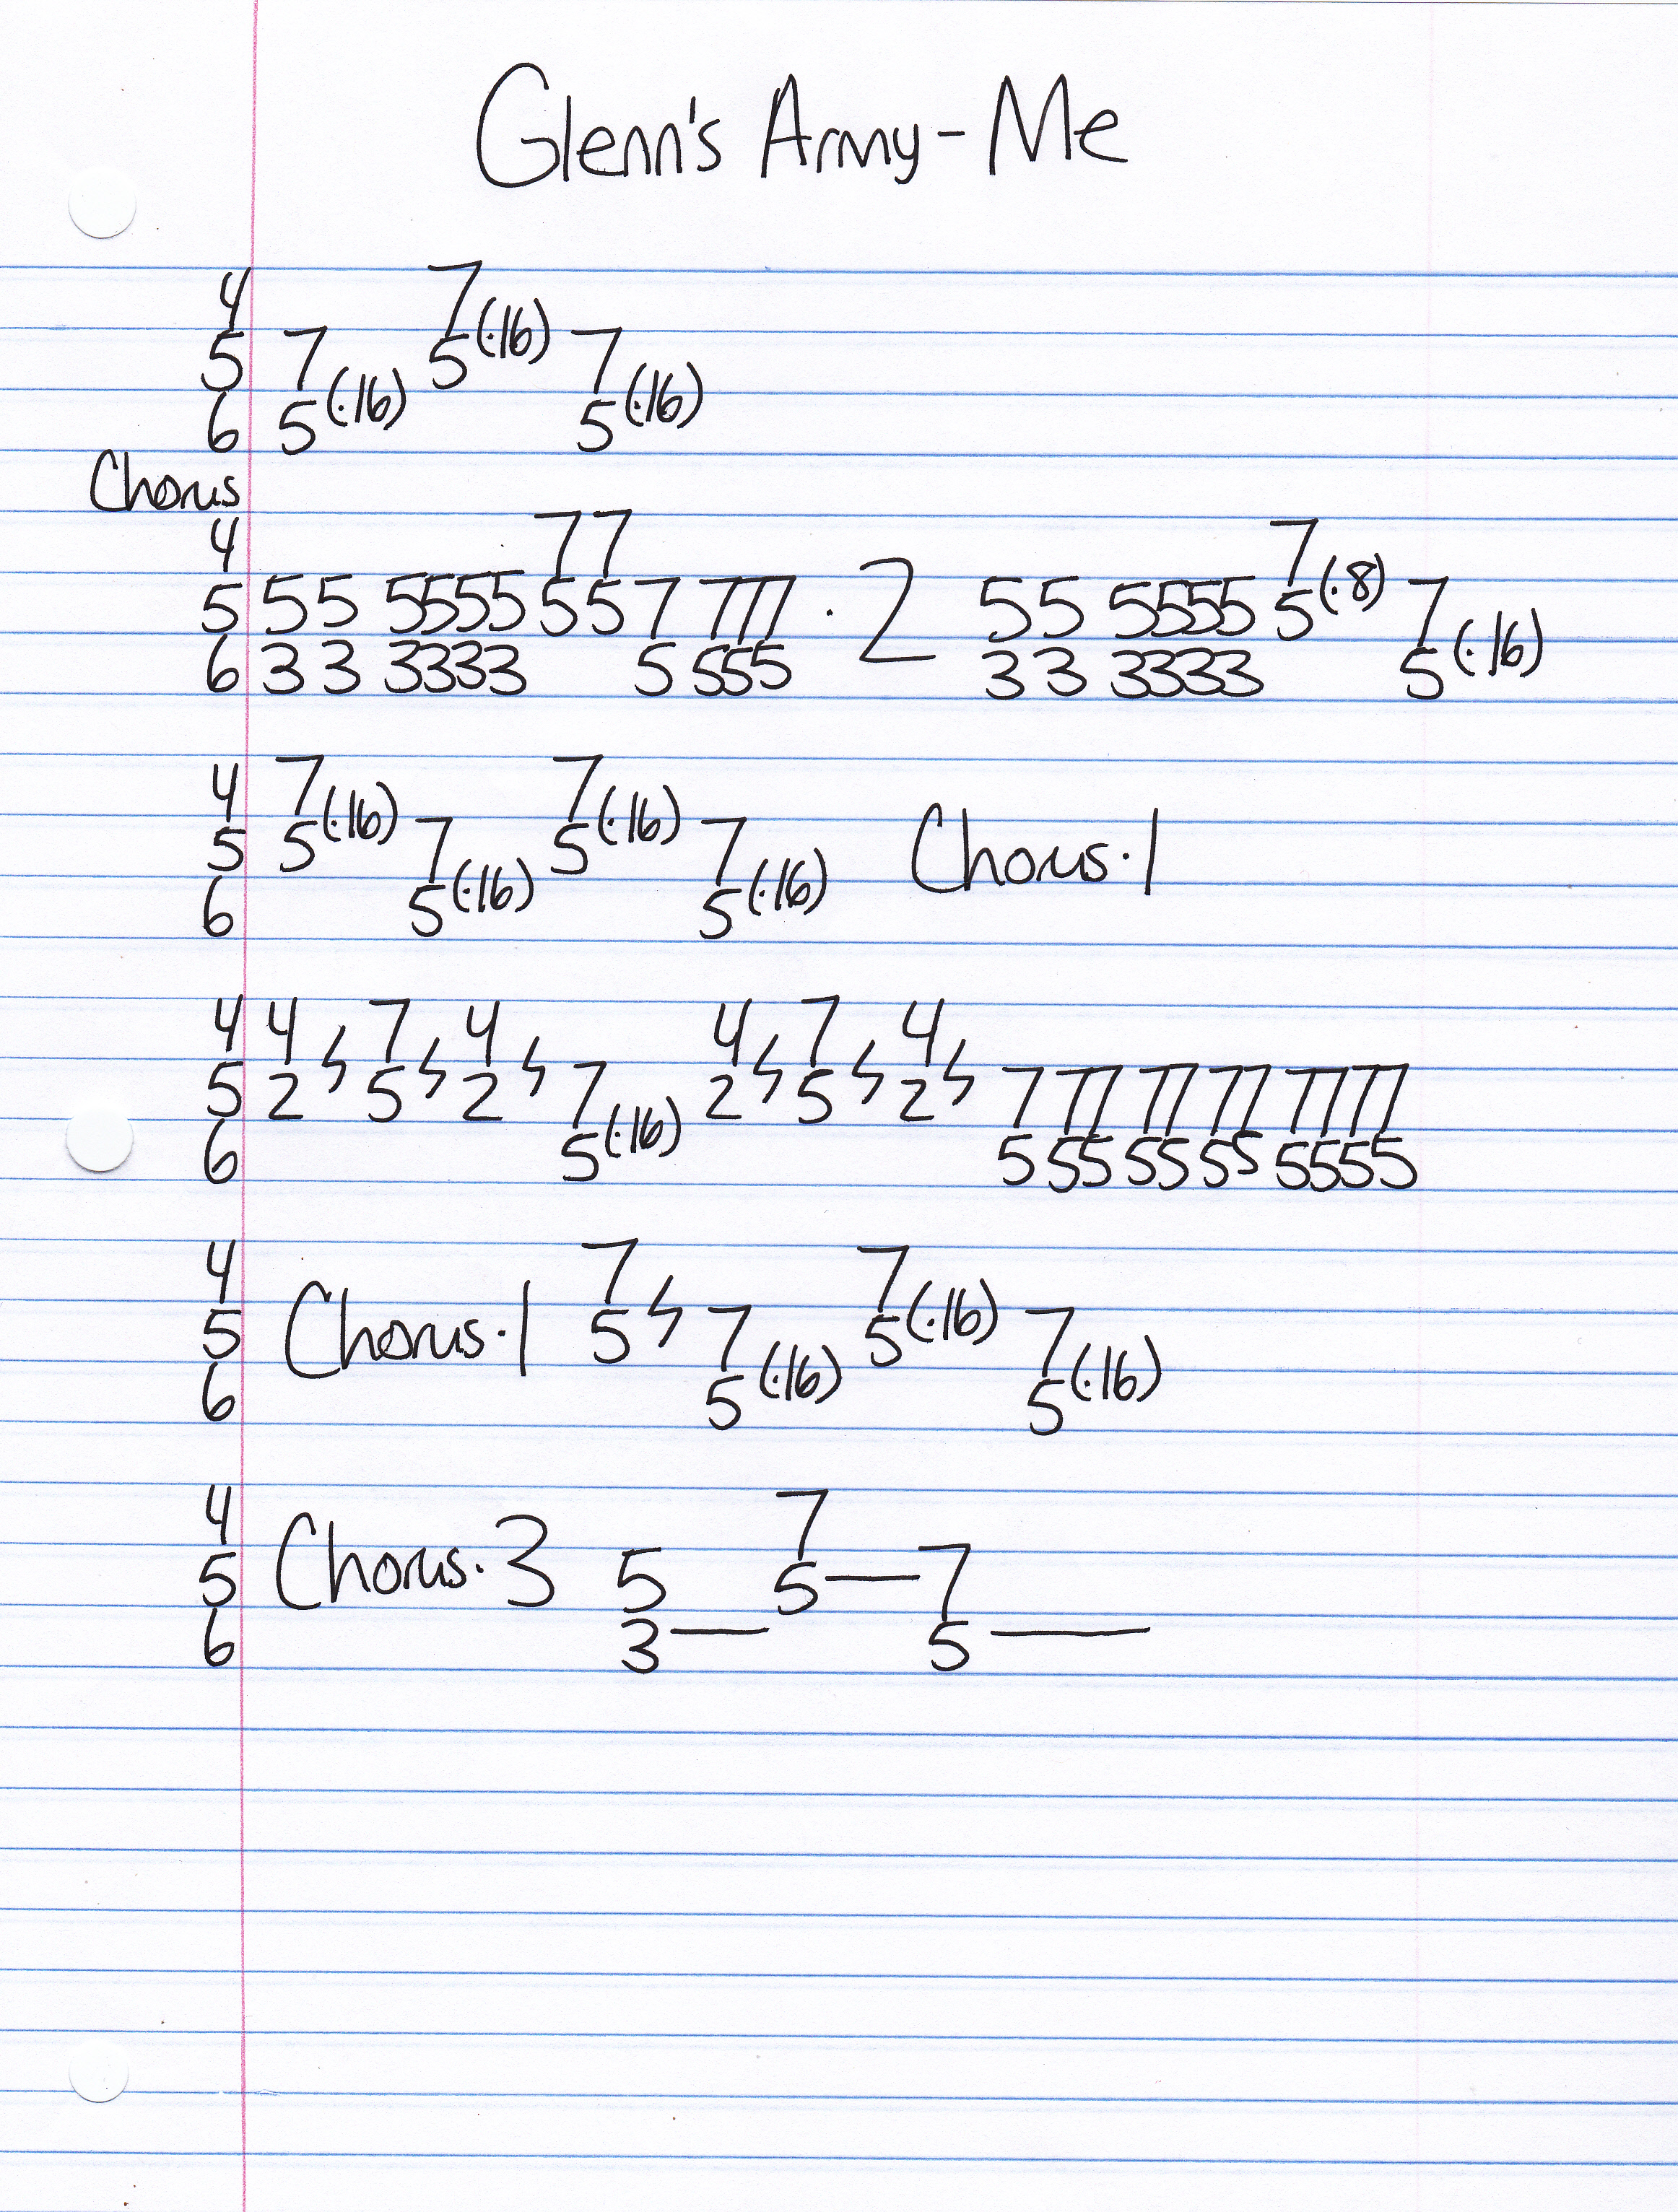 Glenn's Army - Me
4 7(·16)
5 7 5 7
6 5(·16) 5(·16)
Chorus
4 77 7(·8)
5 55 5555 55 7 777 · 2 55 5555 5 7
6 33 3333 5 555 33 3333 5(·16)
4 7(·16) 7(·16)
5 5 7 5 7 Chorus·1
6 5(·16) 5(·16)
4 4 ϟ 7 ϟ 4 ϟ 4 ϟ 7 ϟ 4 ϟ
5 2 5 2 7 2 5 2 7 77 77 77 7777
6 5(·16) 5 55 55 55 5555
4 7 ϟ 7(·16)
5 Chorus·1 5 7 5 7
6 5(·16) 5(·16)
4 7
5 Chorus·3 5 5—7
6 3— 5—